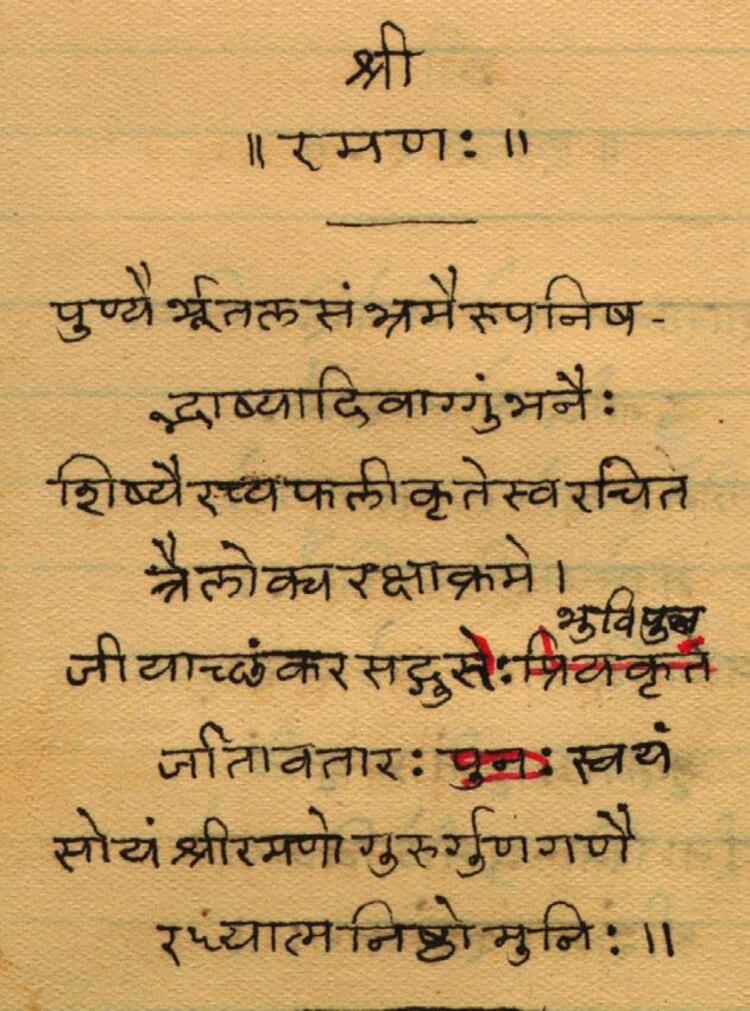 श्री
॥ रमणः ॥
पुण्यैर्भूतलसंभ्रमैरुपनिष-
द्भाष्यादिवाग्गुंभनैः
शिष्यैरप्यफलीकृतेस्वरचित
त्रैलोक्यरक्षाक्रमे।
भुवि पुन
जीयाच्छंकरसद्गुरुः प्रियकृत
र्जातावतारः पुनः स्वयं
सोयं श्रीरमणो गुरुर्गुणगणै
रध्यात्मनिष्ठो मुनिः॥